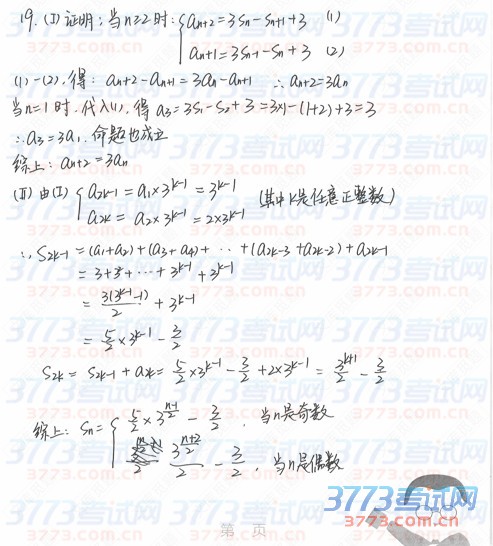 19. (I) 证明: 当n≥2时: { an+2 = 3Sn - Sn+1 + 3 (1)
an+1 = 3Sn-1 - Sn + 3 (2)
(1)-(2), 得: an+2 - an+1 = 3an - an+1 ∴ an+2 = 3an
当n=1时, 代入(1), 得 a3 = 3S1 - S2 + 3 = 3×1 - (1+2) + 3 = 3
∴ a3 = 3a1, 命题也成立
综上: an+2 = 3an
(II) 由(I) { a2k-1 = a1×3^(k-1) = 3^(k-1)
a2k = a2×3^(k-1) = 2×3^(k-1) (其中k是任意正整数)
∴ S2k-1 = (a1+a2) + (a3+a4) + ‥ + (a2k-3 + a2k-2) + a2k-1
= 3+3²+⋯+3^(k-1) + 3^(k-1)
= 3(3^(k-1) -1)/2 + 3^(k-1)
= 5/2 × 3^(k-1) - 3/2
S2k = S2k-1 + a2k = 5/2 × 3^(k-1) - 3/2 + 2×3^(k-1) = 3^(k+1)/2 - 3/2
综上: Sn = { 5/2 × 3^((n-1)/2) - 3/2, 当n是奇数
3^((n+2)/2)/2 - 3/2, 当n是偶数
第 页
3773考试网
3773.com.cn